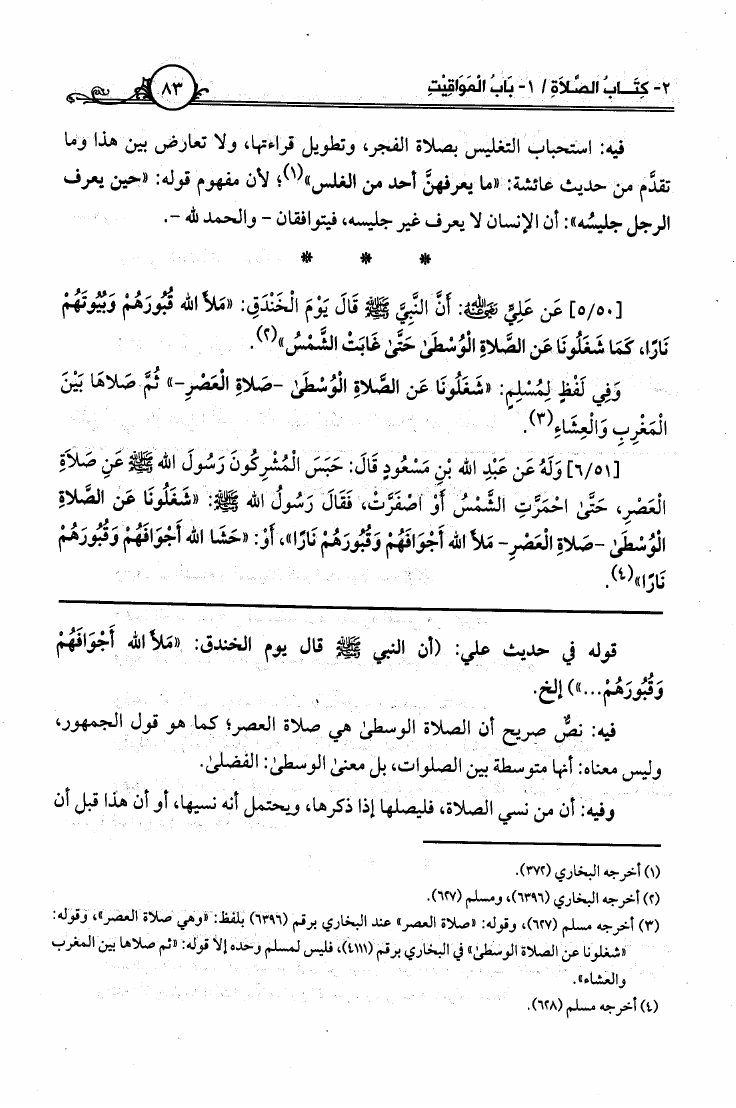 ٢- كِتَـابُ الصَّلَاةِ / ١- بَابُ الْمَوَاقِيْتِ
٨٣
فيه: استحباب التغليس بصلاة الفجر، وتطويل قراءتها، ولا تعارض بين هذا وما
تقدَّم من حديث عائشة: «ما يعرفهنَّ أحد من الغلس»(١)؛ لأن مفهوم قوله: «حين يعرف
الرجل جليسُه»: أن الإنسان لا يعرف غير جليسه، فيتوافقان - والحمد لله -.
* * *
[٥/٥٠] عَن عَلِيٍّ رَضِيَ اللهُ عَنْهُ: أَنَّ النَّبِيَّ ﷺ قَالَ يَوْمَ الْخَنْدَقِ: «مَلأَ الله قُبُورَهُمْ وَبُيُوتَهُمْ
نَارًا، كَمَا شَغَلُونَا عَن الصَّلاةِ الْوُسْطَىٰ حَتَّىٰ غَابَتْ الشَّمْسُ»(٢).
وَفِي لَفْظٍ لِمُسْلِمٍ: «شَغَلُونَا عَن الصَّلاةِ الْوُسْطَىٰ -صَلاةِ الْعَصْرِ-» ثُمَّ صَلاهَا بَيْنَ
الْمَغْرِبِ وَالْعِشَاءِ(٣).
[٦/٥١] وَلَهُ عَن عَبْدِ الله بْنِ مَسْعُودٍ قَالَ: حَبَسَ الْمُشْرِكُونَ رَسُولَ الله ﷺ عَنِ صَلاةِ
الْعَصْرِ، حَتَّىٰ احْمَرَّتِ الشَّمْسُ أَوْ اصْفَرَّتْ، فَقَالَ رَسُولُ الله ﷺ: «شَغَلُونَا عَن الصَّلاةِ
الْوُسْطَىٰ -صَلاةِ الْعَصْرِ- مَلأَ الله أَجْوَافَهُمْ وَقُبُورَهُمْ نَارًا»، أَوْ: «حَشَا الله أَجْوَافَهُمْ وَقُبُورَهُمْ
نَارًا»(٤).
قوله في حديث علي: (أن النبي ﷺ قال يوم الخندق: «مَلأَ الله أَجْوَافَهُمْ
وَقُبُورَهُمْ...») إلخ.
فيه: نصٌّ صريح أن الصلاة الوسطىٰ هي صلاة العصر؛ كما هو قول الجمهور،
وليس معناه: أنها متوسطة بين الصلوات، بل معنىٰ الوسطىٰ: الفضلىٰ.
وفيه: أن من نسي الصلاة، فليصلها إذا ذكرها، ويحتمل أنه نسيها، أو أن هذا قبل أن
(١) أخرجه البخاري (٣٧٢).
(٢) أخرجه البخاري (٦٣٩٦)، ومسلم (٦٢٧).
(٣) أخرجه مسلم (٦٢٧)، وقوله: «صلاة العصر» عند البخاري برقم (٦٣٩٦) بلفظ: «وهي صلاة العصر»، وقوله:
«شغلونا عن الصلاة الوسطىٰ» في البخاري برقم (٤١١١)، فليس لمسلم وحده إلا قوله: «ثم صلاها بين المغرب
والعشاء».
(٤) أخرجه مسلم (٦٢٨).